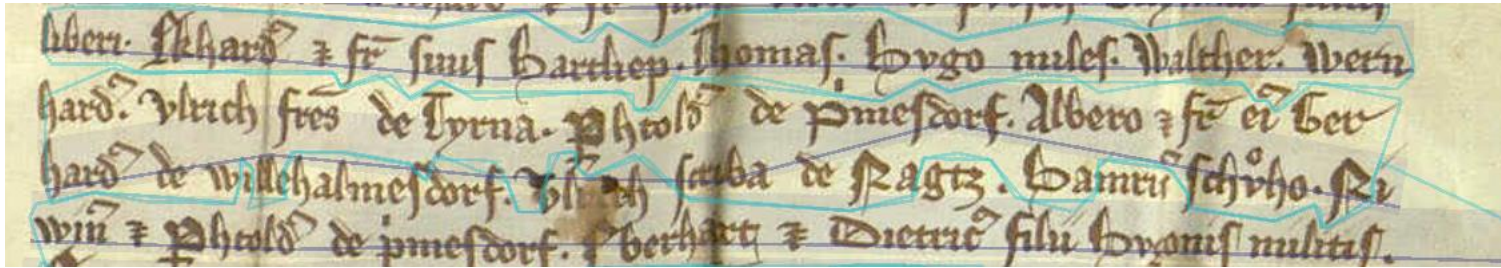 liberi. Ekhard᷒ ⁊ fr̄ suus Hartliep. Thomas. Hugo miles. Walther. Wern
hard᷒. Vlrich fr̄es de Tyrna. Phtold᷒ de pmesdorf. Albero ⁊ fr̄ ei᷒ Ger
hard᷒ de willehalmesdorf. Vlrich scriba de Ragtz. Hainric᷒ schůho. Ri
win̄ ⁊ Phtold᷒ de pmesdorf. Eberhart ⁊ Dietric᷒ filii Hugonis militis.